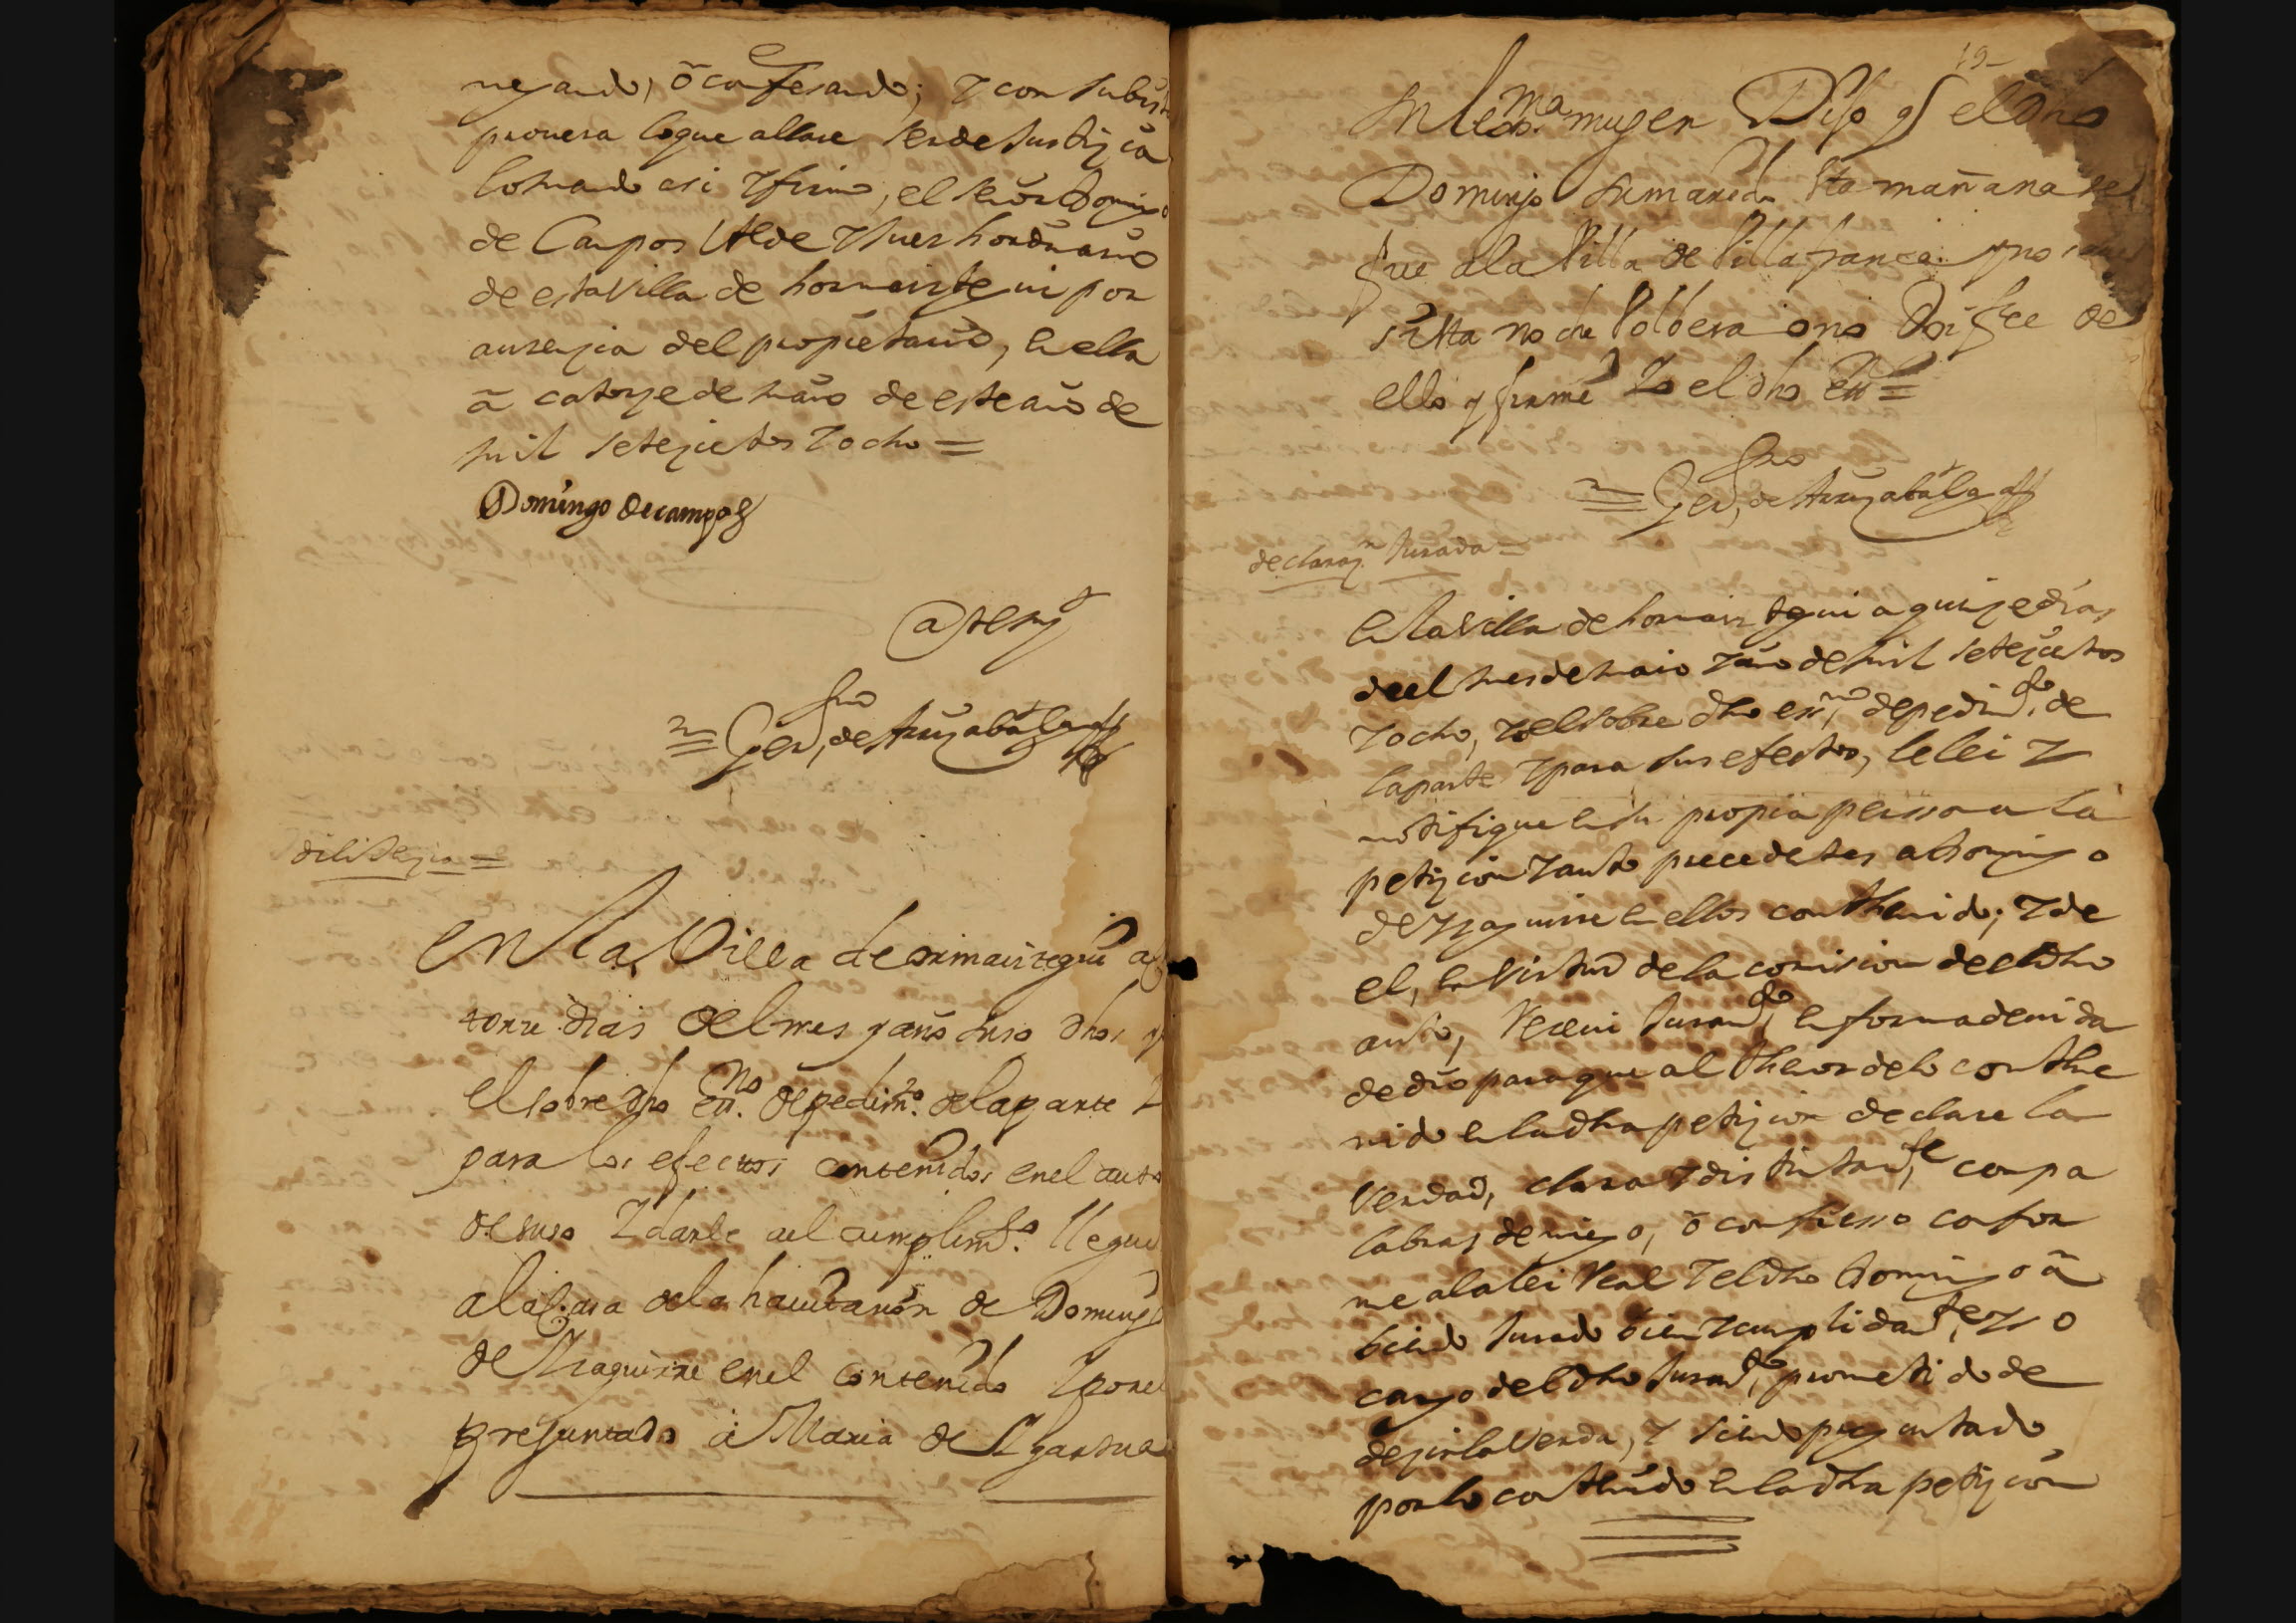 negando, õ confesando; Y con su bista
provera lo que allare ser de Justiçia
lo mando asi Y firmo, el señor Domingo
de Campos Alde Y Juez hordinario
de esta Villa de hormaiztegui por
ausençia del propietario, en ella
ã catorze de maio de este año de
mil seteçietos Y ocho =
Domingo de campos
Ante my
Fran.co de Aruzabalaga
dilixençia =
En la Villa de ormaiztegui a ca
torze dias del mes y año suso dhos y
el sobre dho ess.no de pedim.to de la parte Y
para los efectos contenidos en el auto
de suso Y darle el cumplim.to llegue
a la Casa de la havitaçion de Domingo
de Yzaguirre en el contenido Y por el
preguntado a Maria de Ygartua
19
su lex.ma muger Dijo q el dho
Domingo su marido esta mañana se
fue a la Villa de Villafranca y no save
si esta noche bolbera o no Doi fee de
ello y firmé Yo el dho ess.no =
Fran.co de Aruzabalaga
declaraz.n Jurada =
En la Villa de hormaiztegui a quinze dias
del mes de maio Y año de mil seteçietos
Y ocho, Yo el sobre dho ess.no de pedim.to de
la parte Y para sus efectos, le lei Y
notifique en su propia persona la
petiçion Y auto precedetes a Domingo
de Yzaguirre en ellos conthenido; Y de
el, en Virtud de la comision de el dho
auto, Reçeui Juram.to en forma deuida
de dro para que al thenor de lo conthe
nido en la dha petiçion declare la
Verdad, clara Y distintam.te con pa
labras de niego, õ confiesso confor
me a la lei Real Y el dho Domingo ã
biendo Jurado bien Y cumplidam.te Y so
cargo del dho Juram.to prometido de
dezir la Verdad, Y siendo preguntado
por lo conthenido en la dha petiçion